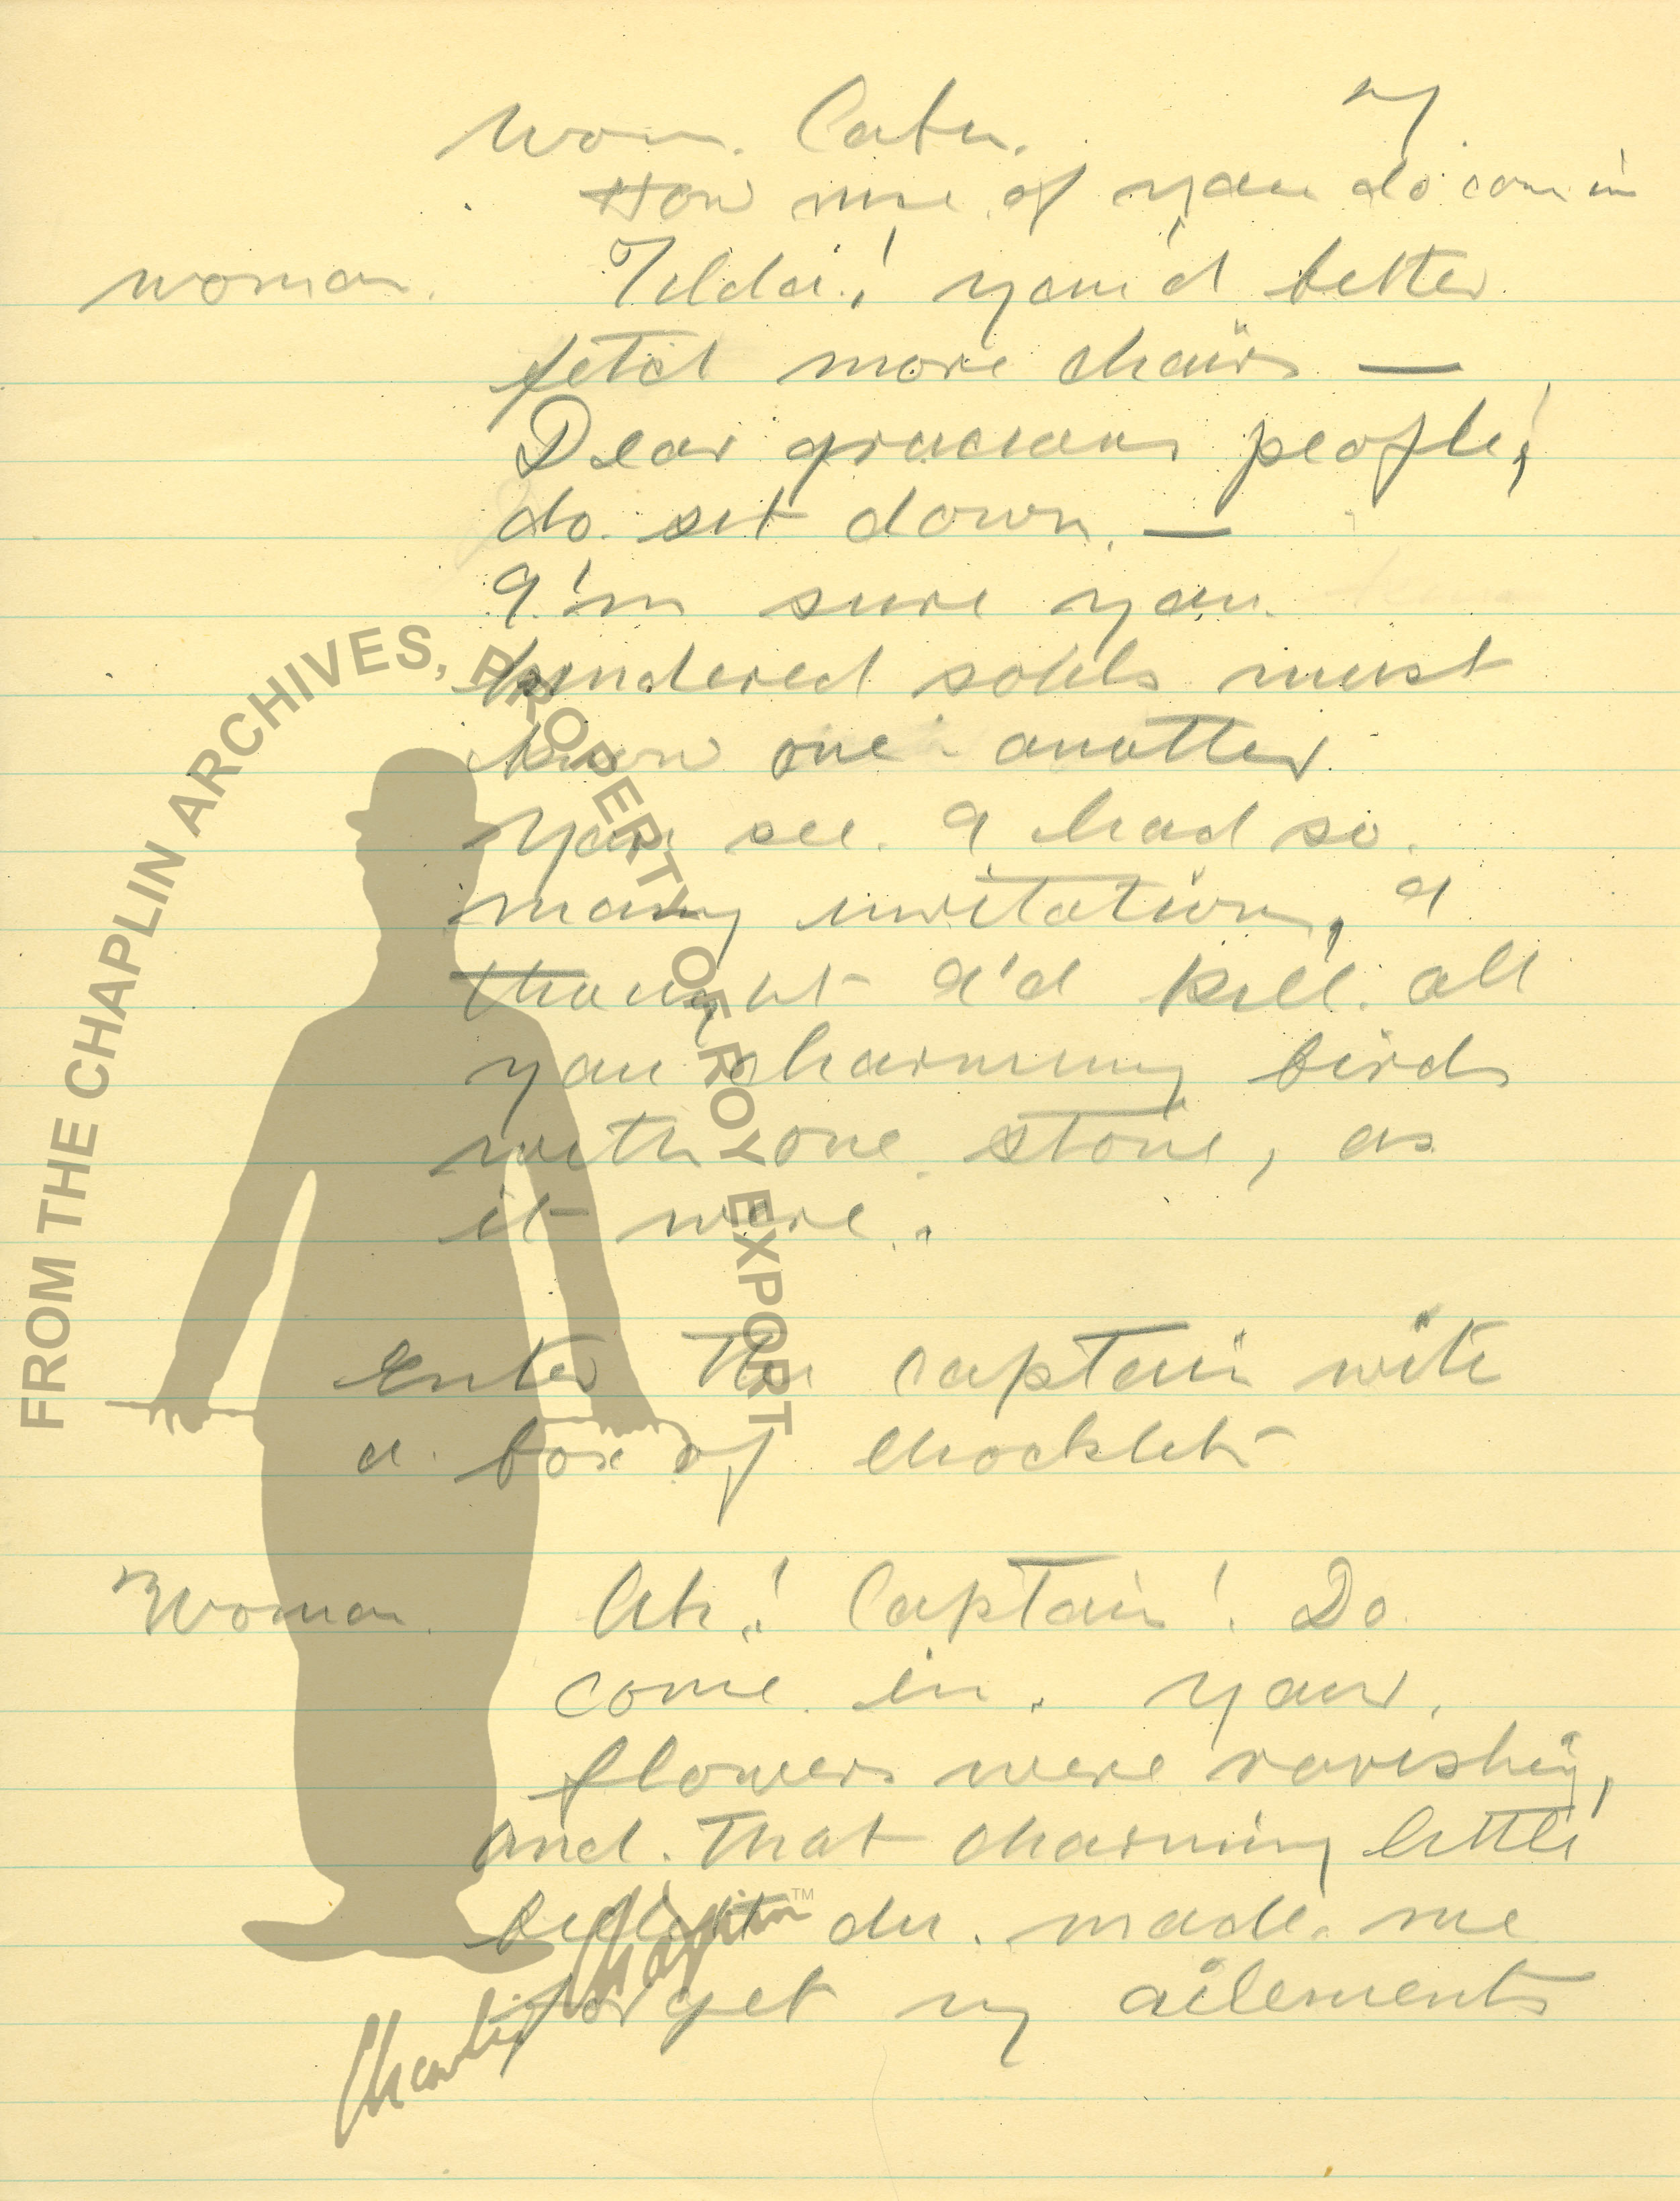 Wom.
How nice of you do come in
woman. Tilda! you'd better
fetch more chairs —
Dear gracious people,
do sit down. —
I'm sure you
kindered souls must
know one another.
You see. I had so
many invitation, I
thought I'd kill all
you charming birds
with one stone, as
it were.
Enter The Captain with
a box of chocklets
Woman. Ah! Captain! Do
come in. your
flowers were ravishing,
and that charming little
made me
forget my ailements
FROM THE CHAPLIN ARCHIVES, PROPERTY OF ROY EXPORT
Charlie Chaplin™